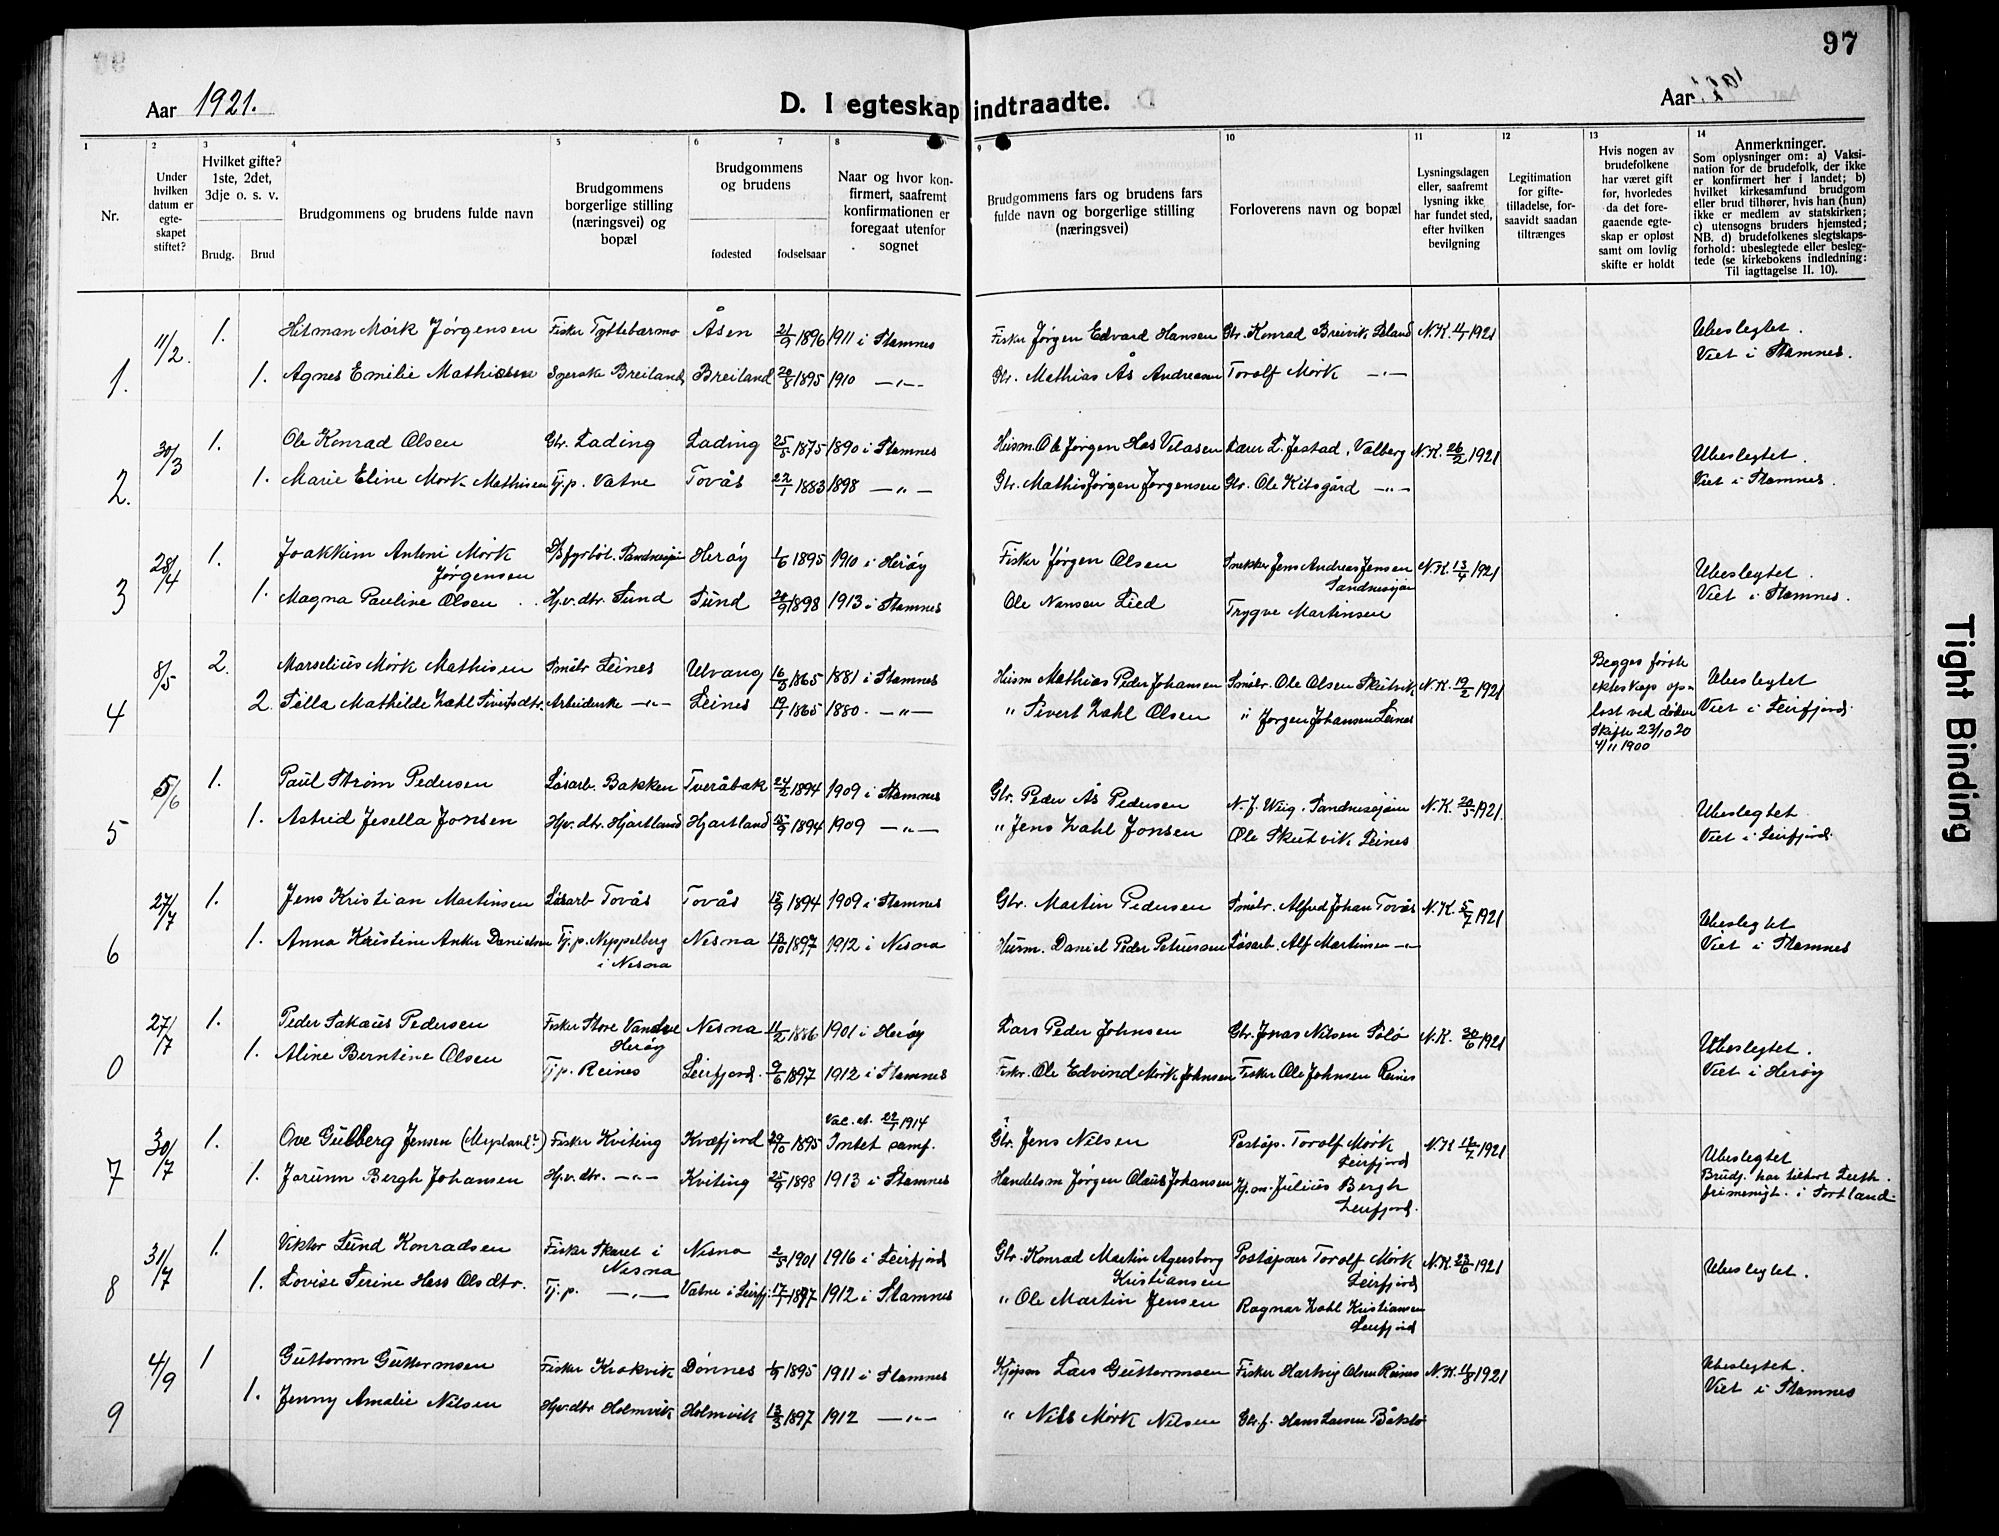 97
Aar 1921.
D. I egteskap indtraadte.
Aar 1921.
1
Nr.
2
Under hvilken datum er egteskapet stiftet?
3
Hvilket gifte? 1ste, 2det, 3dje o. s. v.
Brudg. Brud
4
Brudgommens og brudens fulde navn
5
Brudgommens borgerlige stilling (næringsvei) og bopæl
6 7
Brudgommens og brudens
fødested fødselsaar
8
Naar og hvor konfirmert, saafremt konfirmationen er foregaat utenfor sognet
9
Brudgommens fars og brudens fars fulde navn og borgerlige stilling (næringsvei)
10
Forloverens navn og bopæl
11
Lysningsdagen eller, saafremt lysning ikke har fundet sted, efter hvilken bevilgning
12
Legitimation for giftetilladelse, forsaavidt saadan tiltrænges
13
Hvis nogen av brudefolkene har været gift før, hvorledes da det foregaaende egteskap er opløst samt om lovlig skifte er holdt
14
Anmerkninger.
Som oplysninger om: a) Vaksination for de brudefolk, der ikke er konfirmert her i landet; b) hvilket kirkesamfund brudgom eller brud tilhører, hvis han (hun) ikke er medlem av statskirken; c) utensogns bruders hjemsted; NB. d) brudefolkenes slegtskapsforhold: ubeslegtede eller beslegtede (se kirkebokens indledning: Til iagttagelse II. 10).
11/2 1. Hitman Mørk Jørgensen Fisker Tyttebærmo Åsen 21/9 1896 1911 i Stamnes Fisker Jørgen Edvard Hansen Gbr. Konrad Breivik Leland N.K. 11/1 1921 Ubeslegtet.
1. 1. Agnes Emilie Mathisen Syerske Breiland Breiland 20/8 1895 1910 —"— Gbr. Mathias Ås Andreasen Torolf Mørk —"— Viet i Stamnes.
30/3 1. Ole Konrad Olsen Gbr. Lading Lading 25/5 1875 1890 i Stamnes Husm. Ole Jørgen Hes Lærer L. Jestad, Valberg N.K. 26/2 1921 Ubeslegtet.
2. 1. Marie Eline Mørk Mathisen Tj.p. Vatne Tovås 22/1 1883 1898 —"— Gbr. Mathis Jørgen Jørgensen Gbr. Ole Kitsgård —"— Viet i Stamnes.
28/4 1. Joakkim Antoni Mørk Jørgensen Sandnessjøen Herøy 1/6 1895 1910 i Herøy Fisker Jørgen Olsen Snekker Jens Andreas Jensen Sandnessjøen N.K. 13/4 1921 Ubeslegtet.
3 1. Magna Pauline Olsen Hjv. dtr. Sund Sund 28/9 1898 1913 i Stamnes Ole Nansen Lied Trygve Martinsen Viet i Stamnes.
8/5 2. Marselius Mørk Mathisen Småbr Leines Ulvang 16/3 1865 1881 i Stamnes Husm Mathias Peder Johansen Småbr. Ole Olsen Skutvik N.K. 19/2 1921 Begges første ekteskap opløst ved døden Skifte 23/10 20 4/11 1900 Ubeslegtet
4 2 Silla Mathilde Zahl Sivertsdtr. Arbeiderske —"— Leines 19/1 1865 1880. —"— " Sivert Zahl Olsen " Jørgen Johansen Leines Viet i Leirfjord.
5/6 1. Paul Strøm Pedersen Løsarb. Bakken Tveråbak 24/2 1894 1909 i Stamnes Gbr. Peder Ås Pedersen N. J. Weig. Sandnessjøen N.K. 20/5 1921. Ubeslegtet.
5 1. Astrid Jesella Jonsen Hjv. dtr. Hjartland Hjartland 15/9 1894 1909 —"— " Jens Zahl Jonsen Ole Skutvik Leines Viet i Leirfjord.
27/7 1. Jens Kristian Martinsen Løsarb Tovås Tovås 15/9 1894 1909 i Stamnes Gbr. Martin Pedersen Småbr. Alfred Johan Tovås N.K. 5/7 1921 Ubeslegtet
6 1. Anna Kristine Anker Danielsen Tj.p. Neppelberg i Nesna Nesna 13/10 1897 1912 i Nesna Husm. Daniel Peder Petersen Løsarb. Alf Martinsen —"— Viet i Stamnes
27/7 1. Peder Sakæus Pedersen Fisker Store Vandve Herøy Nesna 11/2 1886 1901 i Herøy Lars Peder Johnsen Gbr. Jonas Nilsen Sølø N.K. 30/6 1921 Ubeslegtet.
0 1. Aline Berntine Olsen Tj.p. Reines Leirfjord. 9/6 1897 1912 i Stamnes Fisker. Ole Edvind Mørk Johnsen Fisker Ole Johnsen Reines Viet i Herøy
30/7 1. Ove Gulberg Jensen (Mypland?) Fisker Kviting Kvæfjord 29/10 1895 Vac. at. 22/1 1914 Intet samf. Gbr. Jens Nilsen Poståp. Torolf Mørk Leirfjord N.K. 1921 Ubeslegtet
7 1. Jorunn Bergh Johansen Hjv. dtr. —"— Kviting 25/9 1898 1913 i Stamnes Handelsm Jørgen Olaus Johansen Julius Bergh Leirfjord. Brudg. har tilhørt Luth. frimenigh. i Sortland.
31/7 1. Viktor Lund Konradsen Fisker Skaret i Nesna Nesna 2/5 1901 1916 i Leirfjord Gbr. Konrad Martin Agersborg Kristiansen Poståpner Torolf Mørk Leirfjord N.K. 23/6 1921 Ubeslegtet.
8 1. Lovise Serine Hess Olsdtr. Tj.p. —"— Vatne i Leirfj. 17/7 1897 1912 i Stamnes " Ole Martin Jensen Ragnar Zahl Kristiansen Leirfjord
4/9 1 Guttorm Guttormsen Fisker Krokvik Dønnes 1/9 1895 1911 i Stamnes Lars Guttormsen Fisker Hartvig Olsen Reines N.K. 11/8 1921 Ubeslegtet.
9 1. Jenny Amalie Nilsen Hjv. dtr Holmvik Holmvik 13/3 1897 1912 —"— " Nils Mørk Nilsen Hans Larsen Viet i Stamnes
Tight Binding